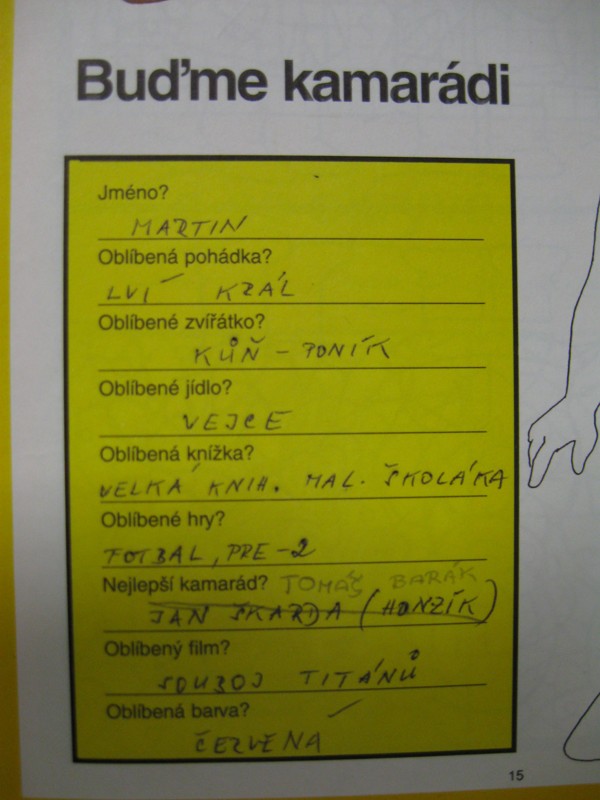 Buďme kamarádi
Jméno?
MARTIN
Oblíbená pohádka?
LVÍ KRÁL
Oblíbené zvířátko?
KŮŇ - PONÍK
Oblíbené jídlo?
VEJCE
Oblíbená knížka?
VELKÁ KNIH. MAL. ŠKOLÁKA
Oblíbené hry?
FOTBAL, PRE-2
Nejlepší kamarád? TOMÁŠ BARÁK
JAN ŠKARDA (HONZÍK)
Oblíbený film?
SOUBOJ TITÁNŮ
Oblíbená barva?
ČERVENÁ
15